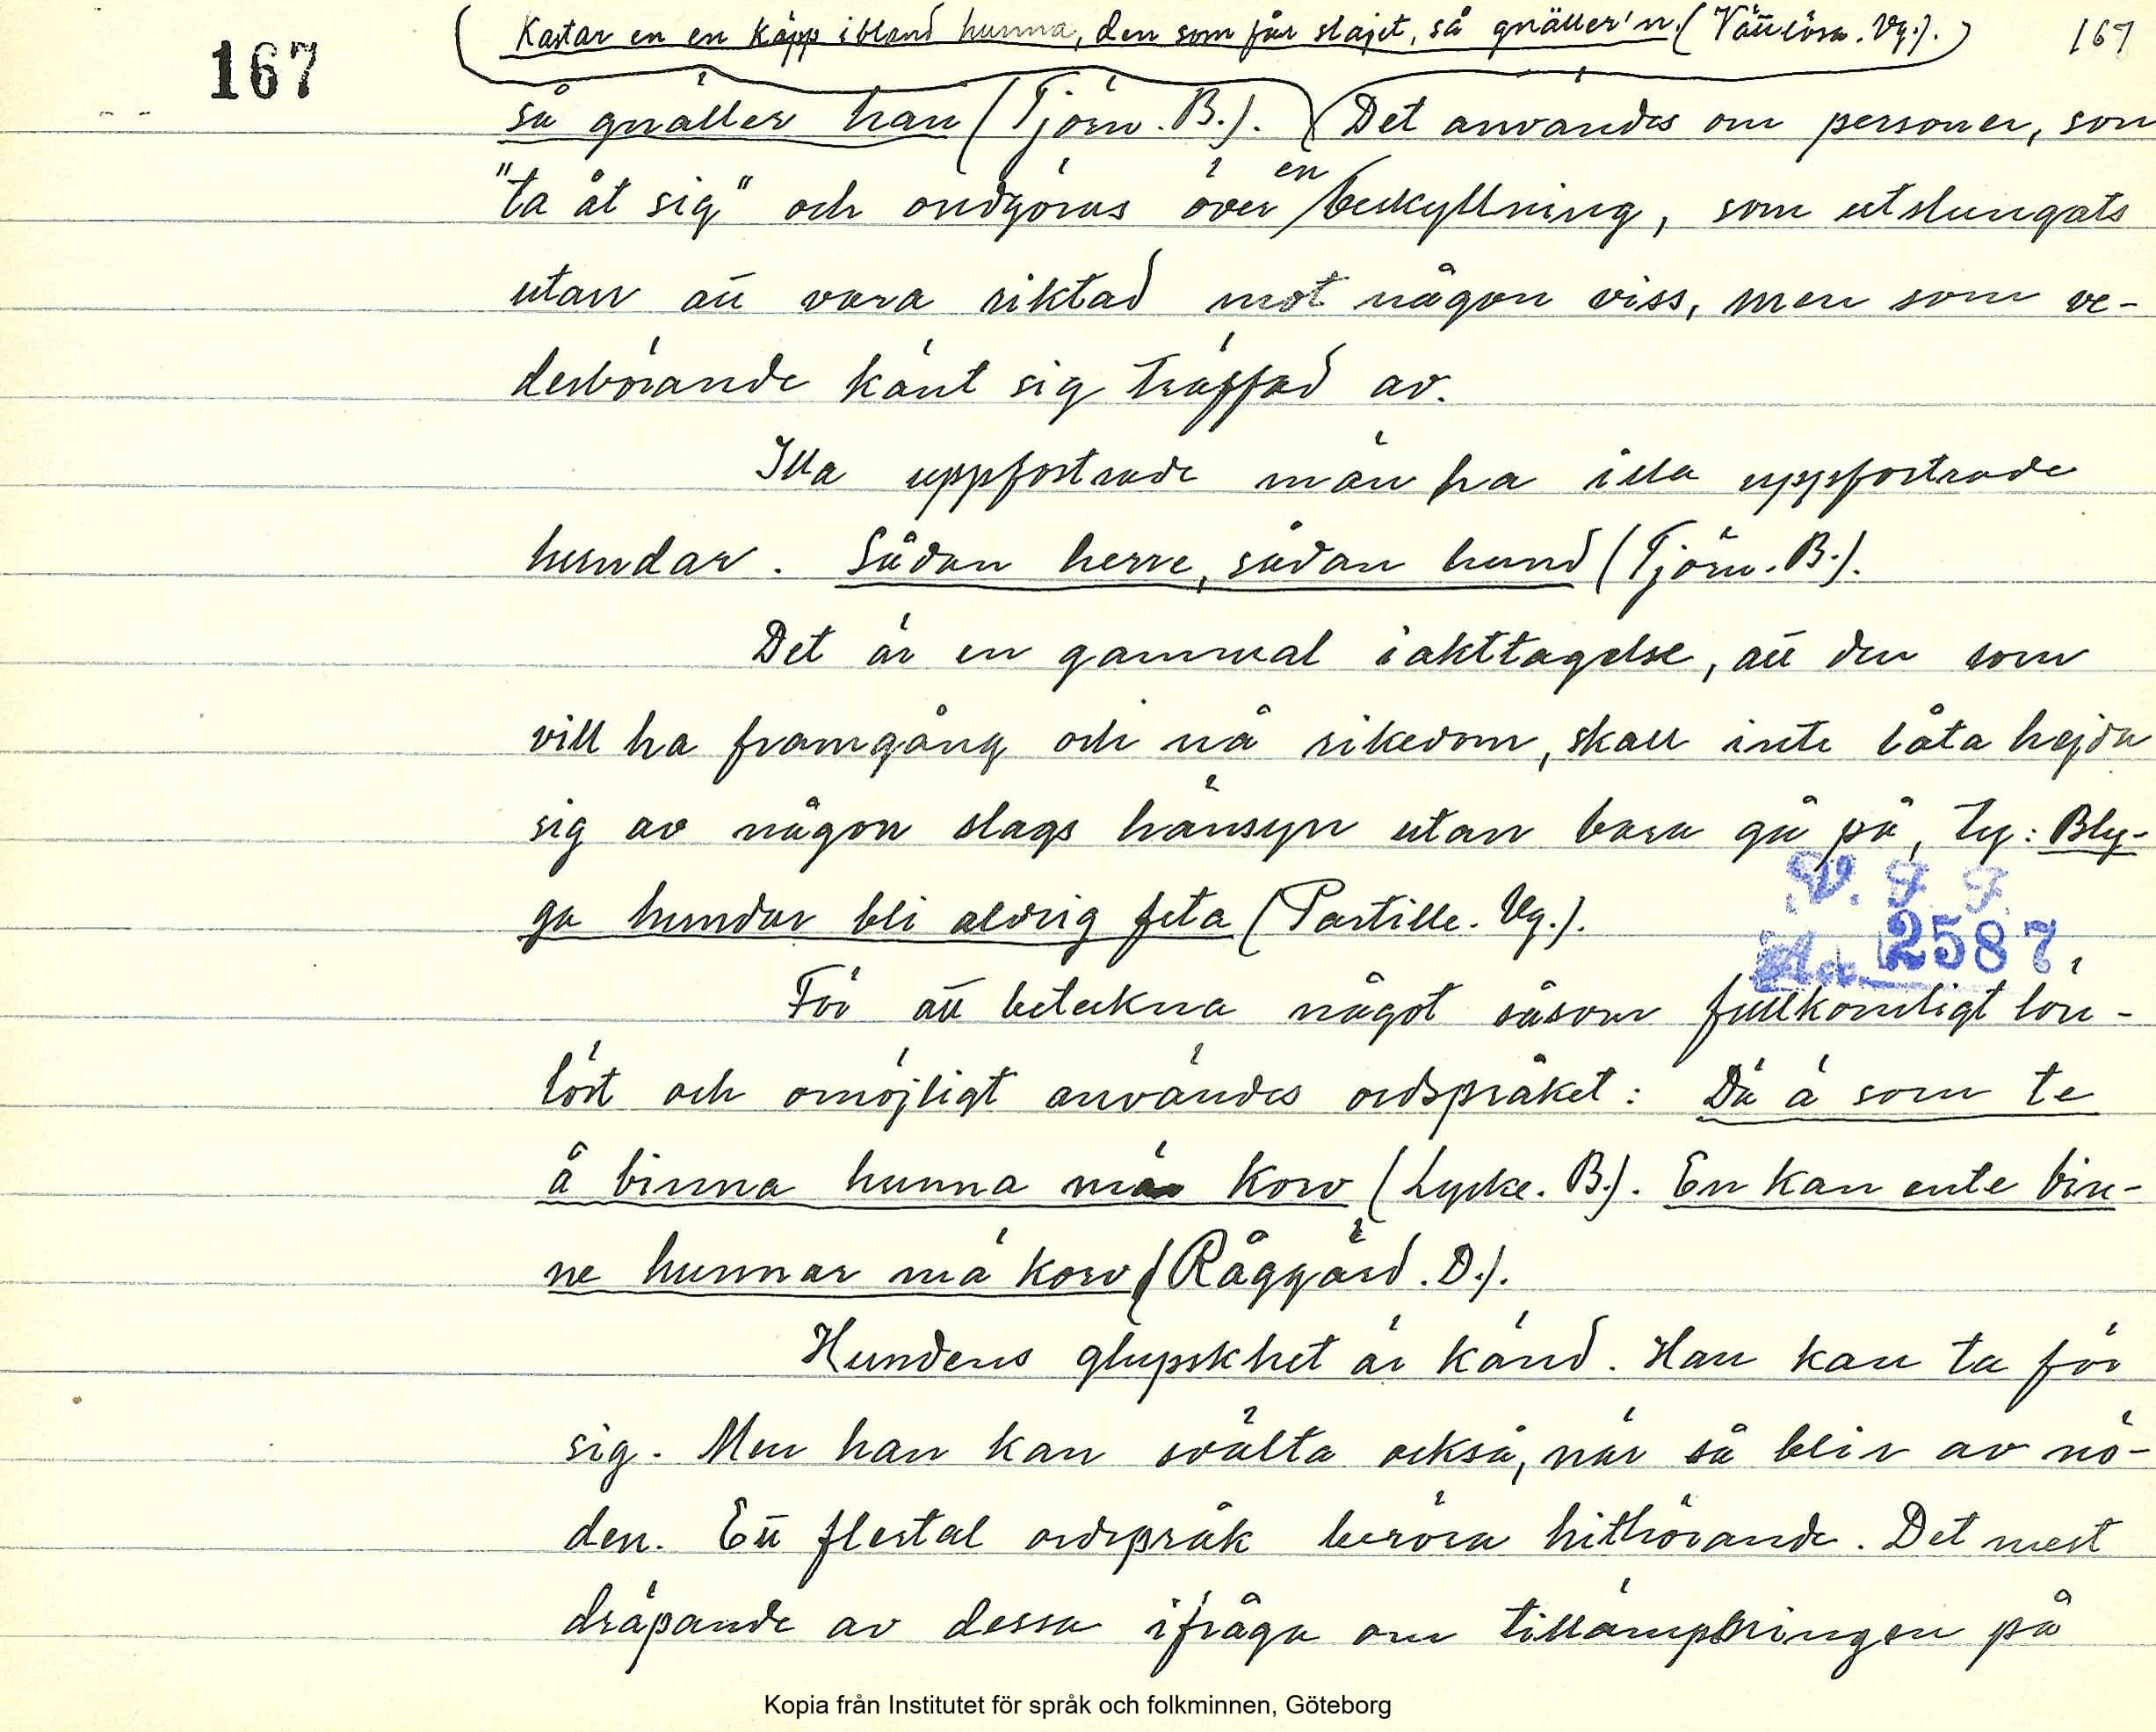 Kastar en en käpp ibland hunna, den som får slajet, så gnäller'n. (Vättlösa. Vg.).
167
167
så gnäller han (Tjörn. B.). Det användes om personer, som
"ta åt sig" och ondgöras över en beskyllning, som utslungats
utan att vara riktad mot någon viss, men som ve-
derbörande känt sig träffad av.
Illa uppfostrade män ha illa uppfostrade
hundar. Sådan herre, sådan hund (Tjörn. B.).
Det är en gammal iakttagelse, att den som
vill ha framgång och nå rikedom, skall inte låta hejda
sig av någon slags hänsyn utan bara gå på, ty: Bly-
ga hundar bli aldrig feta (Partille. Vg.).
V. F. F.
Acc. 2587
För att beteckna något såsom fullkomligt lön-
löst och omöjligt användes ordspråket: Dä ä som te
å binna hunna mä korv (Lycke. B.). En kan ente bin-
ne hunnar mä korv (Råggärd. D.).
Hundens glupskhet är känd. Han kan ta för
sig. Men han kan svälta också, när så blir av nö-
den. Ett flertal ordspråk beröra hithörande. Det mest
dräpande av dessa ifråga om tillämpningen på
Kopia från Institutet för språk och folkminnen, Göteborg